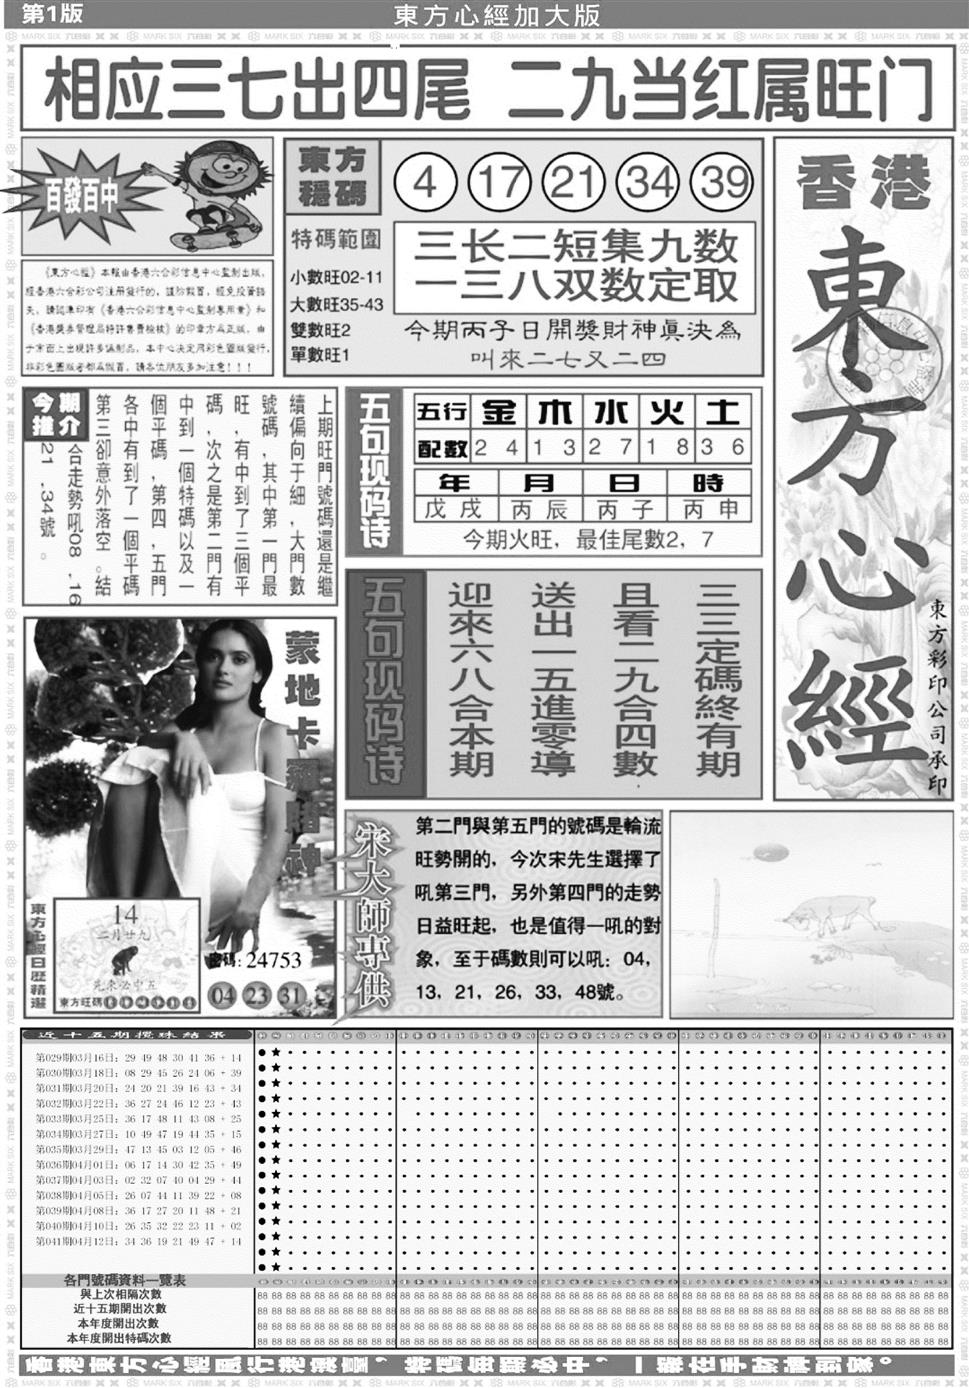 第1版
東方心經加大版
相应三七出四尾 二九当红属旺门
百發百中
《東方心經》本報由香港六合彩信息中心監制出版，
經香港六合彩公司注册發行的，謹防假冒，經免投資錯
失，請認準印有《香港六合彩信息中心監制專用章》和
《香港獎券管理局特許售賣檢核》的印章方為正版，由
于市面上出現許多偽制品，本中心决定用彩色圖版發行，
非彩色圖版者都為假冒，請各位朋友多加注意！！！
東方
穩碼
4 17 21 34 39
特碼範圍
小數旺02-11
大數旺35-43
雙數旺2
單數旺1
三长二短集九数
一三八双数定取
今期丙子日開獎財神真決為
叫來二七又二四
香港
東方心經
東方彩印公司承印
今期
推介
上期旺門號碼還是繼
續偏向于細，大門數
號碼，其中第一門最
旺，有中到了三個平
碼，次之是第二門有
中到一個特碼以及一
個平碼，第四，五門
各中有到了一個平碼
第三卻意外落空。結
合走勢吼08，16
21，34號。
五句现码诗
五行 金 木 水 火 土
配數 2 4 1 3 2 7 1 8 3 6
年 月 日 時
戊戌 丙辰 丙子 丙申
今期火旺，最佳尾數2，7
五句现码诗
三三定碼終有期
且看二九合四數
送出一五進零導
迎來六八合本期
蒙地卡羅賭神
東方心經日歷精選
14
二月廿九
密碼：24753
04 23 31
東方旺碼
宋大師專供
第二門與第五門的號碼是輪流
旺勢開的，今次宋先生選擇了
吼第三門，另外第四門的走勢
日益旺起，也是值得一吼的對
象，至于碼數則可以吼：04，
13，21，26，33，48號。
近十五期攪珠結果
第029期03月16日：29 49 48 30 41 36 + 14
第030期03月18日：08 29 45 26 24 06 + 39
第031期03月20日：24 20 21 39 16 43 + 34
第032期03月22日：36 27 24 46 12 23 + 43
第033期03月25日：36 17 48 11 43 08 + 25
第034期03月27日：10 49 47 19 44 35 + 15
第035期03月29日：47 13 45 03 12 05 + 46
第036期04月01日：06 17 14 30 42 35 + 49
第037期04月03日：02 32 07 40 04 29 + 44
第038期04月05日：26 07 44 11 39 22 + 08
第039期04月08日：36 17 27 20 11 48 + 21
第040期04月10日：26 35 32 22 23 11 + 02
第041期04月12日：34 36 19 21 49 47 + 14
各門號碼資料一覽表
與上次相隔次數
近十五期開出次數
本年度開出次數
本年度開出特碼次數
香港東方心經風行港澳臺，特碼每期必中，一報在手財神到家。